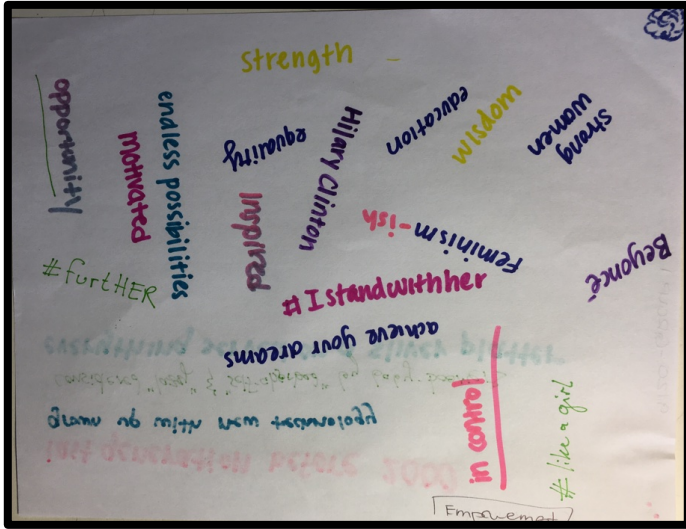 strength -
opportunity
motivated
endless possibilities
equality
Hilary Clinton
education
wisdom
strong
women
Inspired
Feminism-ish
Beyoncé
#furtHER
#Istandwithher
achieve your dreams
in control
#like a girl
grown up with new technology
Empowerment